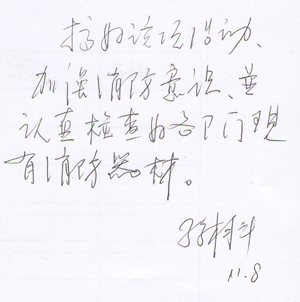 搞好该项活动、
加强消防意识、並
认真检查好各部门现
有消防器材。
11.8